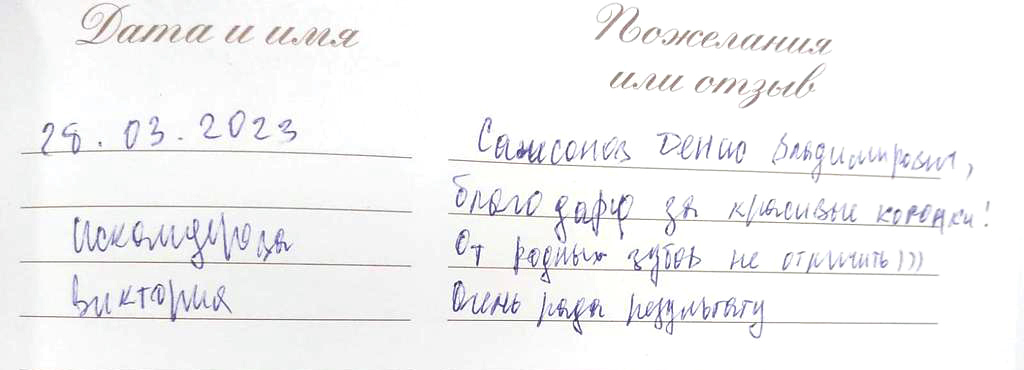 Дата и имя
Пожелания
или отзыв
28.03.2023
Виктория
Самсонов Денис Владимирович,
благодарю за красивые коронки!
От родных зубов не отличить)))
Очень рада результату